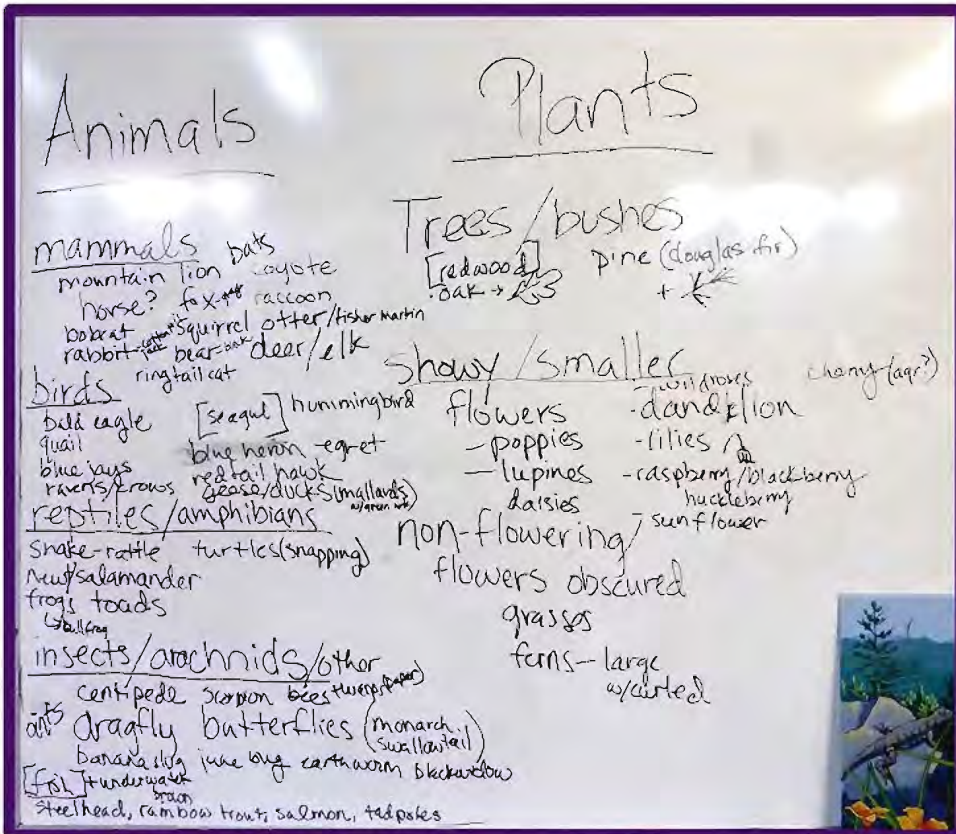 Animals
mammals
bats
mountain lion coyote
horse? fox raccoon
bobcat squirrel otter/fisher martin
rabbit bear deer/elk
ringtail cat
birds
bald eagle [seagul] hummingbird
quail blue heron - egret
blue jays redtail hawk
ravens/crows geese/ducks (mallards)
reptiles/amphibians
snake-rattle turtles (snapping)
newt/salamander
frogs toads
bullfrog
insects/arachnids/other
centipede scorpion bees + wasps (paper)
ants dragfly butterflies (monarch
swallowtail)
banana slug june bug earthworm blackwidow
[fish] + underwater
steelhead, rainbow trout, salmon, tadpoles
Plants
Trees/bushes
[redwood] pine (douglas fir)
oak → +
showy/smaller
flowers
- poppies
- lupines
daisies
- wildroses
- dandelion
- lilies
- raspberry/blackberry
huckleberry
- sunflower
non-flowering/
flowers obscured
grasses
ferns - large
w/curled